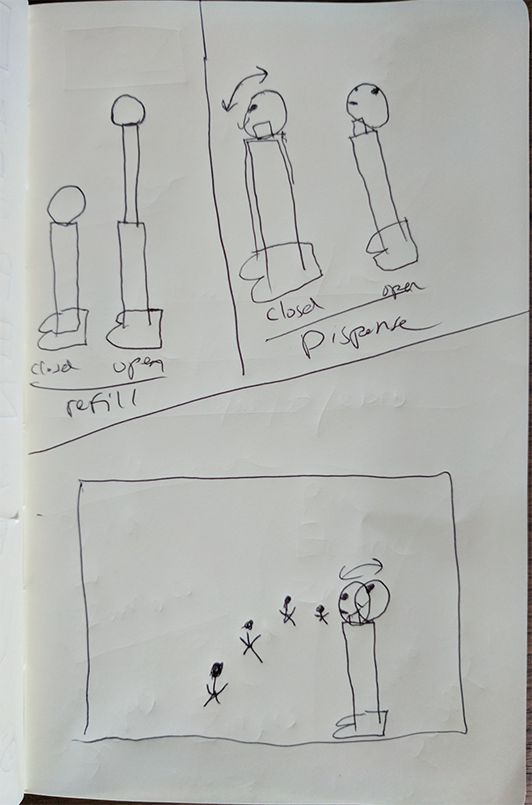 closed open
refill
closed open
Dispense